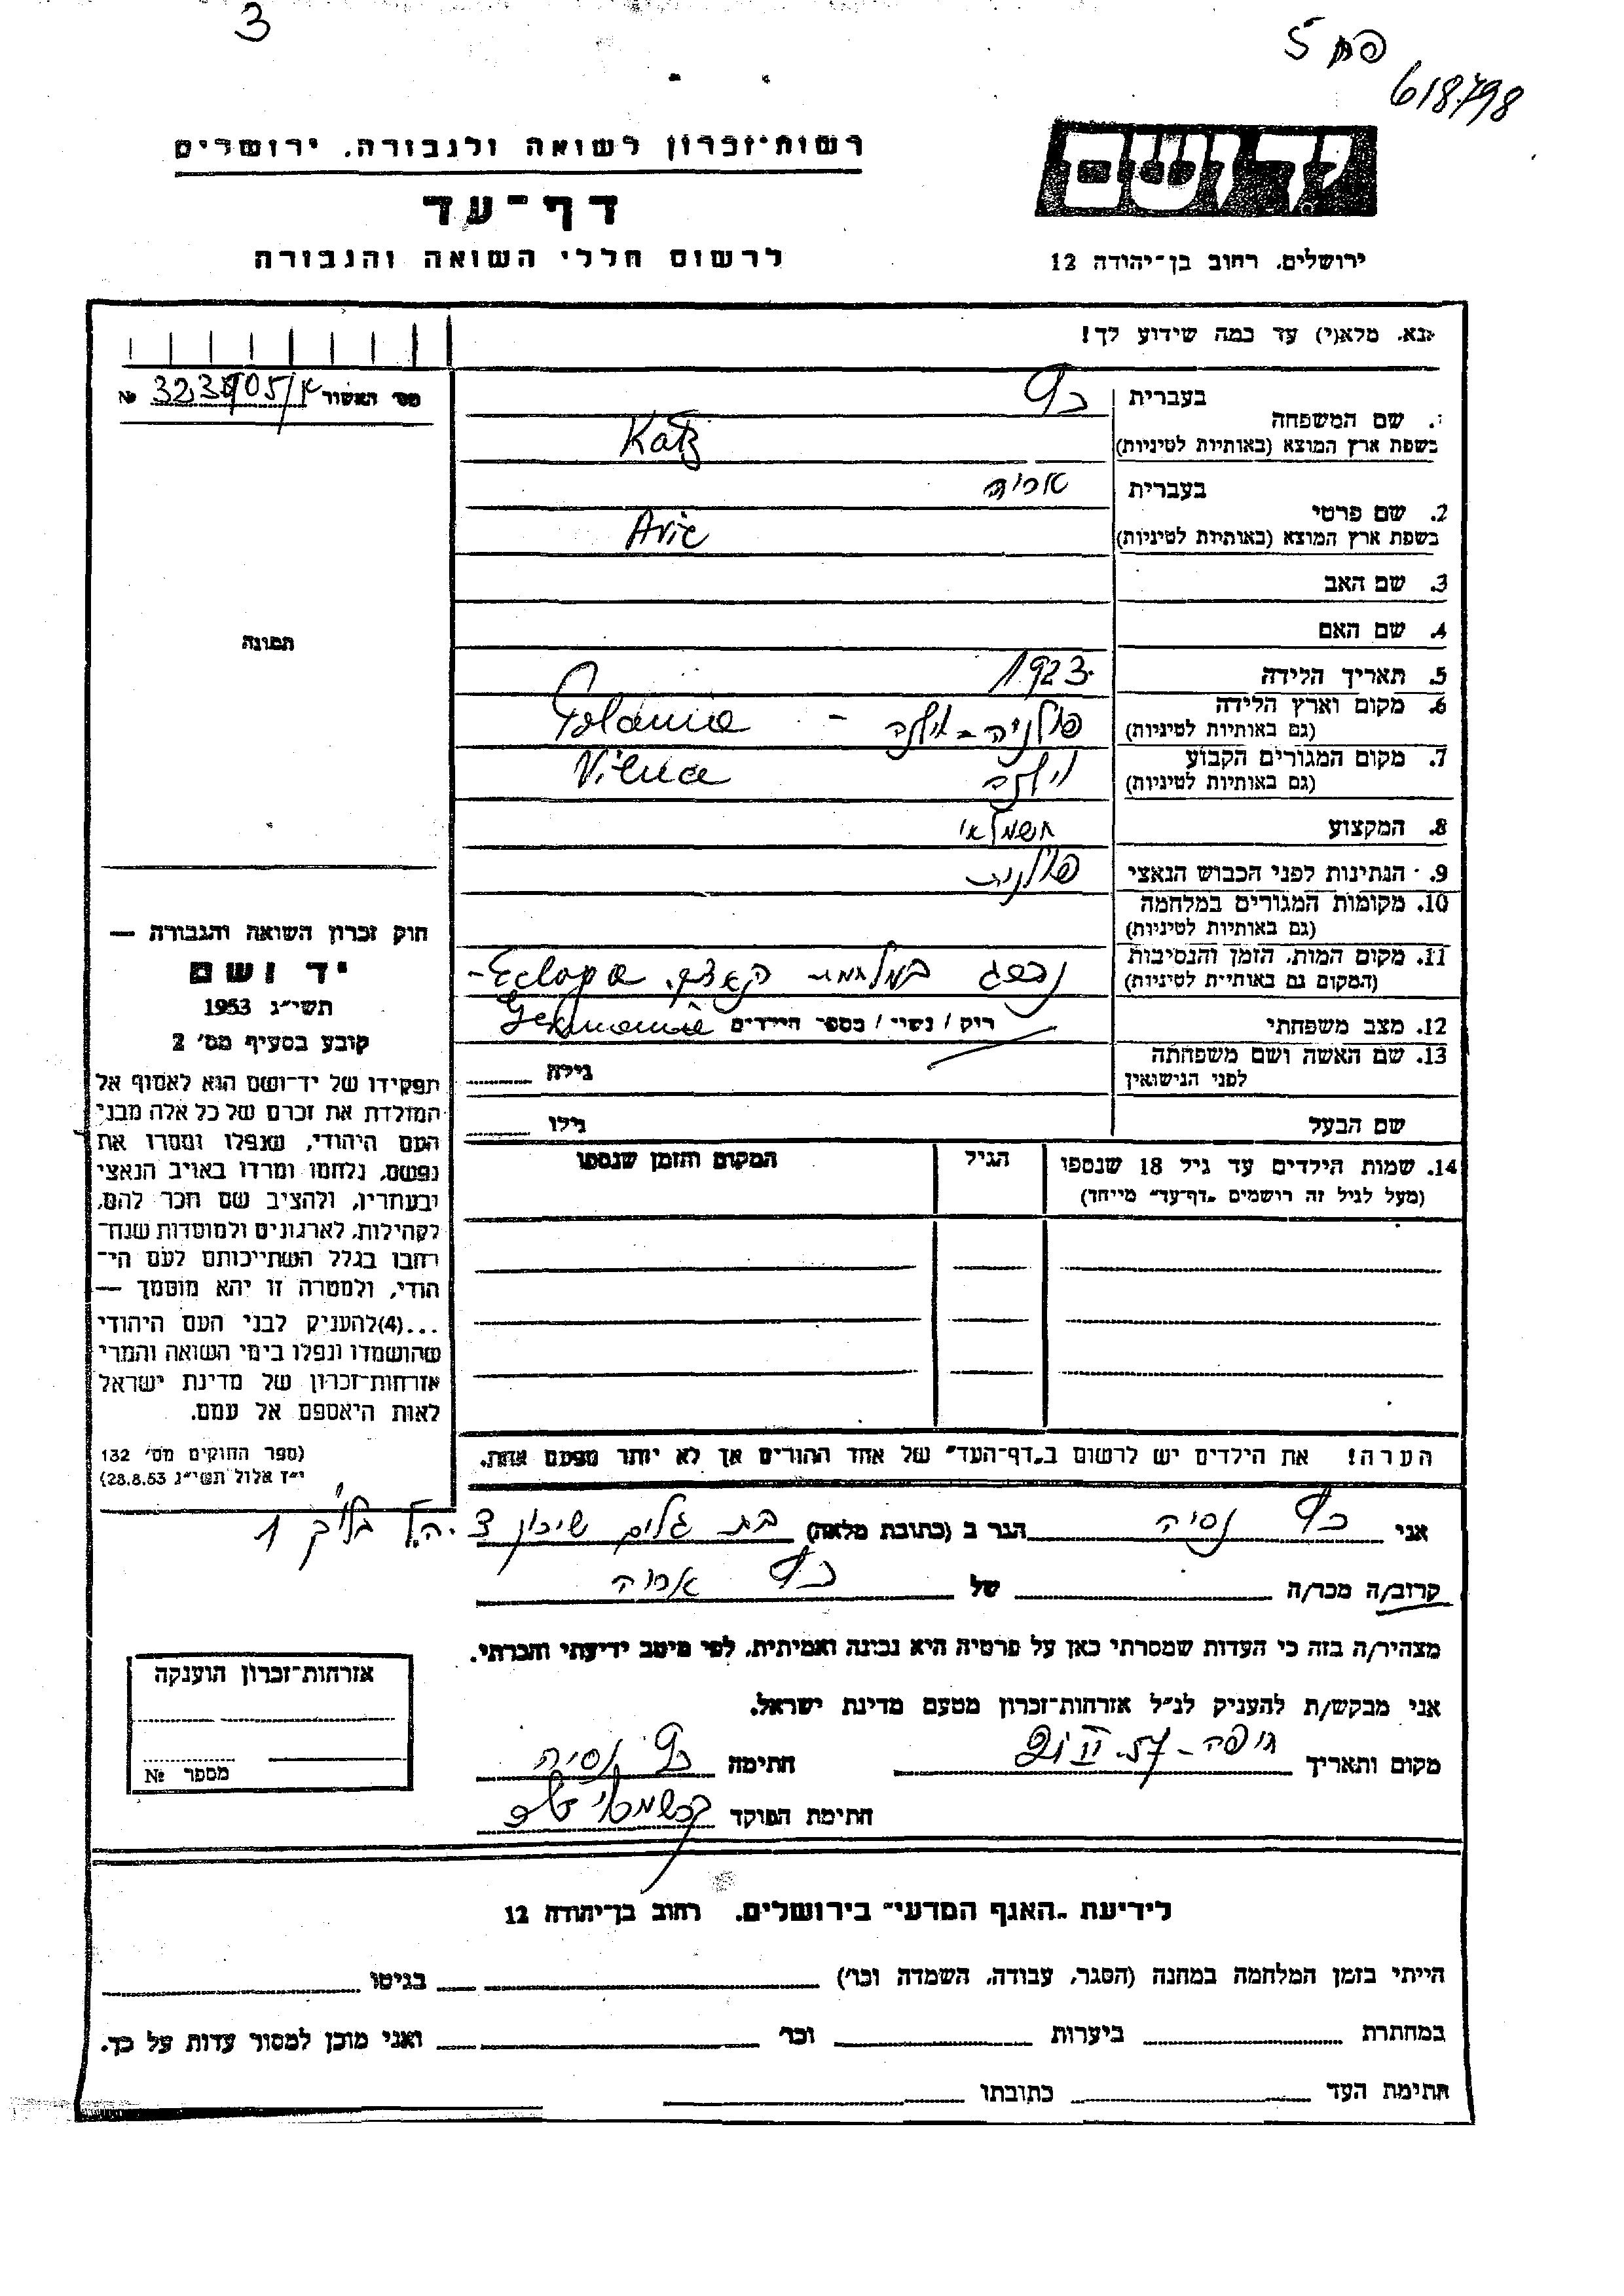 3
פח 5
618798
יד ושם
ירושלים. רחוב בן־יהודה 12
רשות־זכרון לשואה ולגבורה. ירושלים
דף־עד
לרשום חללי השואה והגבורה
נא. מלא(י) עד כמה שידוע לך!
מס׳ האשור №
1. שם המשפחה
בעברית כץ
בשפת ארץ המוצא (באותיות לטיניות) Katz
2. שם פרטי
בעברית אריה
בשפת ארץ המוצא (באותיות לטיניות) Arie
3. שם האב
4. שם האם
תמונה
5. תאריך הלידה 1923
6. מקום וארץ הלידה
(גם באותיות לטיניות) פולניה - וילנה - Polania
7. מקום המגורים הקבוע
(גם באותיות לטיניות) וילנה Vilna
8. המקצוע חשמלאי
9. הנתינות לפני הכבוש הנאצי פולנית
10. מקומות המגורים במלחמה
(גם באותיות לטיניות)
11. מקום המות. הזמן והנסיבות
(המקום גם באותיות לטיניות) נהרג במלחמת
12. מצב משפחתי רוק / נשוי / מספר הילדים
13. שם האשה ושם משפחתה
לפני הנישואין גילה
שם הבעל גילו
14. שמות הילדים עד גיל 18 שנספו
(מעל לגיל זה רושמים „דף־עד״ מייחד)
הגיל
המקום והזמן שנספו
חוק זכרון השואה והגבורה —
יד ושם
תשי״ג 1953
קובע בסעיף מס׳ 2
תפקידו של יד־ושם הוא לאסוף אל
המולדת את זכרם של כל אלה מבני
העם היהודי, שנפלו ומסרו את
נפשם, נלחמו ומרדו באויב הנאצי
ובעוזריו, ולהציב שם וזכר להם,
לקהילות, לארגונים ולמוסדות שנח־
רבו בגלל השתייכותם לעם הי־
הודי, ולמטרה זו יהא מוסמך —
...(4) להעניק לבני העם היהודי
שהושמדו ונפלו בימי השואה והמרי
אזרחות־זכרון של מדינת ישראל
לאות היאספם אל עמם.
(ספר החוקים מס׳ 132
י״ז אלול תשי״ג 28.8.53)
הערה! את הילדים יש לרשום ב„דף־העד״ של אחד ההורים אך לא יותר מפעם אחת.
אני כץ נסיה הגר ב (כתובת מלאה) בת גלים שיכון צ.ה.ל בלוק 1
קרוב/ה מכר/ה של כץ אריה
מצהיר/ה בזה כי העדות שמסרתי כאן על פרטיה היא נכונה ואמיתית, לפי מיטב ידיעתי והכרתי.
אני מבקש/ת להעניק לנ״ל אזרחות־זכרון מטעם מדינת ישראל.
מקום ותאריך חיפה - חתימה כץ נסיה
חתימת הפוקד
אזרחות־זכרון הוענקה
מספר №
לידיעת „האגף המדעי״ בירושלים. רחוב בן־יהודה 12
הייתי בזמן המלחמה במחנה (הסגר, עבודה, השמדה וכו׳) בגיטו
במחתרת ביערות וכו׳ ואני מוכן למסור עדות על כך.
חתימת העד כתובתו